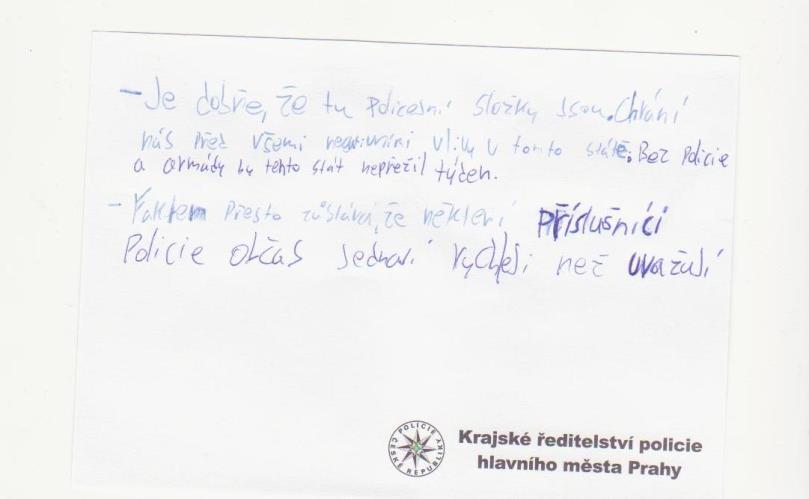 - Je dobře, že tu policejní složky jsou. Chrání
nás před všemi negativními vlivy v tomto státě. Bez Policie
a armády by tento stát nepřežil týden.
- Faktem přesto zůstává, že někteří příslušníci
Policie občas jednají rychleji než uvažují
POLICIE ČESKÉ REPUBLIKY
Krajské ředitelství policie
hlavního města Prahy